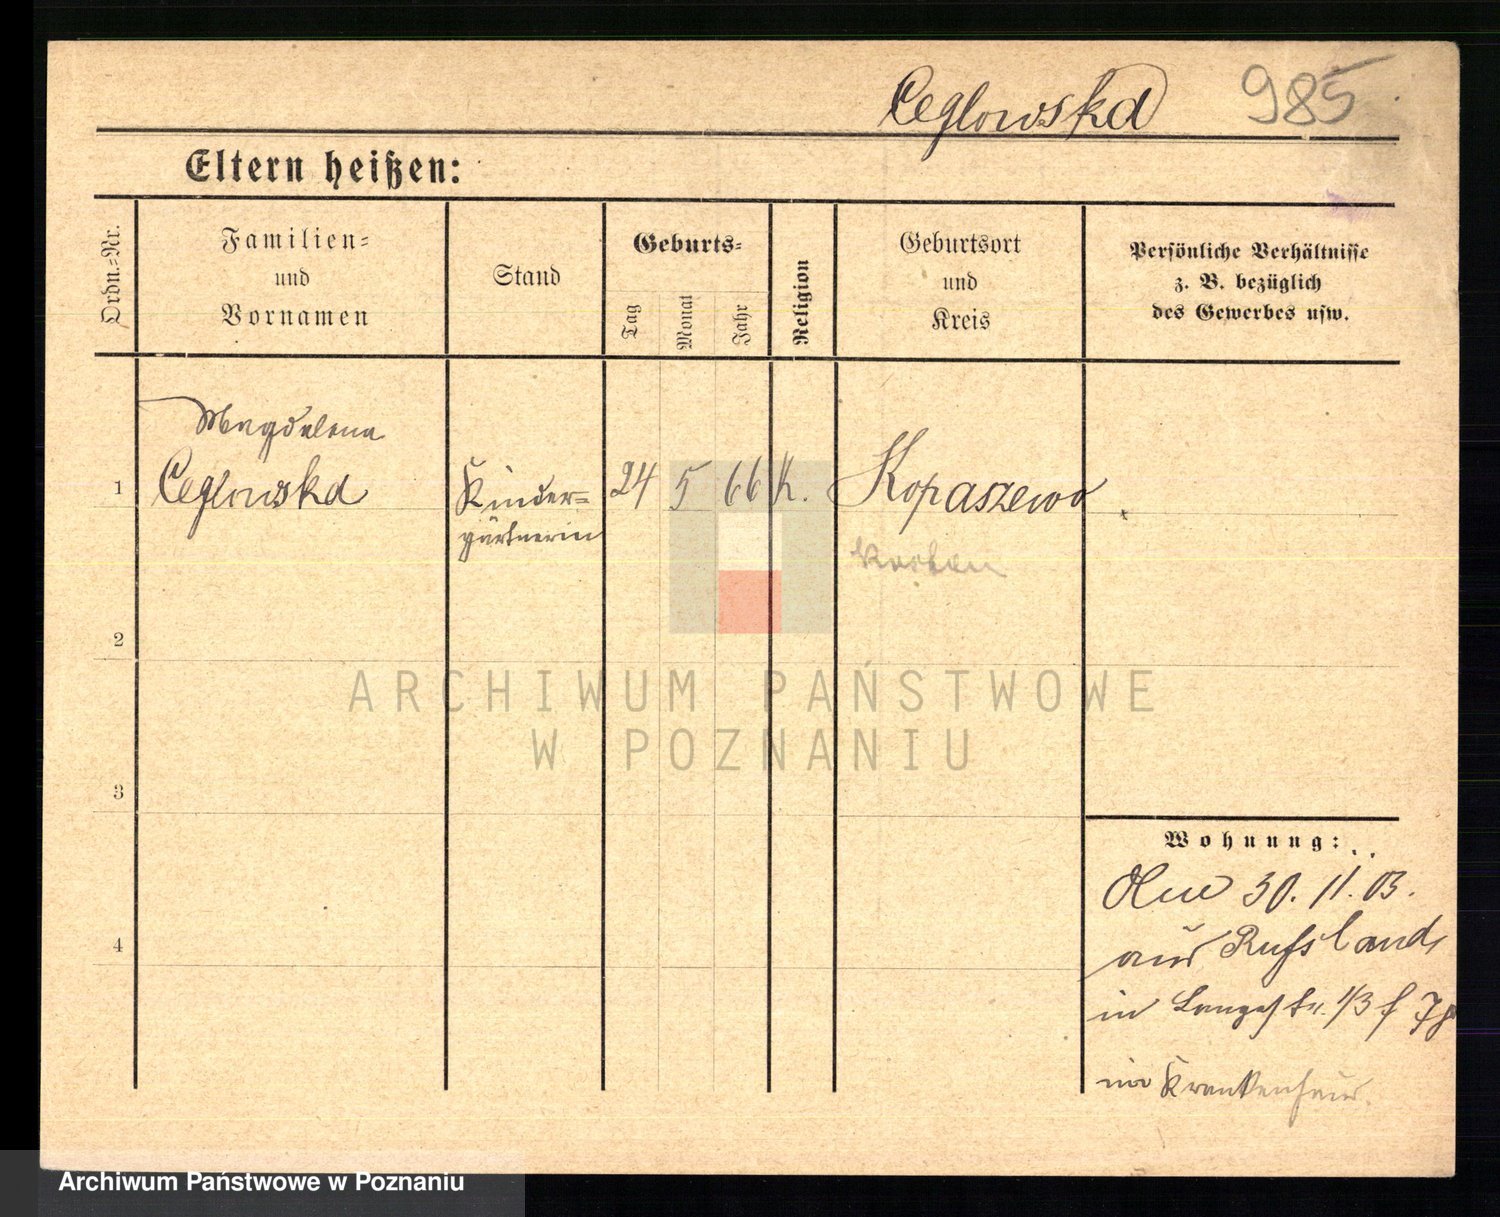 Ceglowska 985
Eltern heißen:
Ordn.-Nr.
Familien-
und
Vornamen
Stand
Geburts-
Tag
Monat
Jahr
Religion
Geburtsort
und
Kreis
Persönliche Verhältnisse
z. B. bezüglich
des Gewerbes usw.
Magdalena
1 Ceglowska Kinder- 24 5 66 K. Kopaszewo
gärtnerin Kosten
2
ARCHIWUM PAŃSTWOWE
W POZNANIU
3
Wohnung:
30. 11. 03.
4
aus Rußland
in Langestr. 1/3
im Krankenhaus.
Archiwum Państwowe w Poznaniu